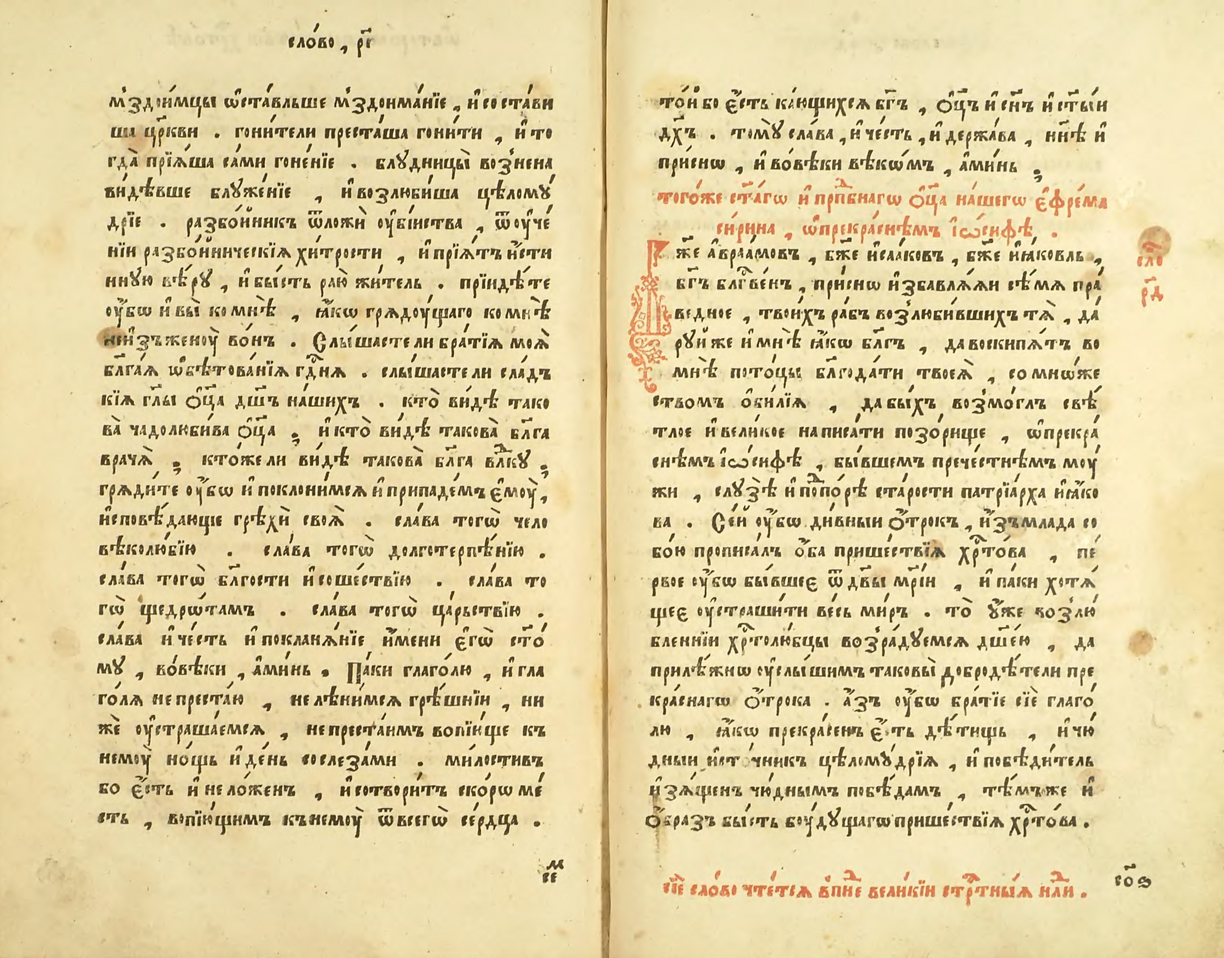 сло́во, рг҃
мздои́мцы ѿста́вльше мздоима́нїе, и҆ соста́ви
ша цр҃кви. гони́тели преста́ша гони́ти, и҆ то
гда̀ прїѧ́ша са́ми гоне́нїе. блꙋдни́цы вознена
ви́дѣвше блꙋже́нїе, и҆ возлюби́ша цѣломꙋ́
дрїе. разбо́йникъ ѿложѝ ᲂу҆бі́йства, ѿ ᲂу҆че́
нїи разбо́йническїѧ хи́трости, и҆ прїѧ́тъ и҆́сти
ннꙋю вѣ́рꙋ, и҆ бы́сть раю̀ жи́тель. прїиди́те
ᲂу҆́бѡ и҆ вы̀ ко мнѣ̀, ꙗ҆́кѡ грѧдꙋ́щаго ко мнѣ̀
не и҆зженꙋ̀ во́нъ. Слы́шасте ли бра́тїѧ моѧ̀
бл҃га́ѧ ѡ҆бѣтова́нїѧ гдⷭ҇нѧ. слы́шасте ли сла́дъ
кїѧ гл҃ы ѻ҆ц҃а̀ дш҃ъ на́шихъ. кто̀ ви́дѣ тако
ва̀ чадолюби́ва ѻ҆ц҃а̀; и҆ кто̀ ви́дѣ такова̀ бл҃га
врача̀; кто́же ли ви́дѣ такова̀ бл҃га влⷣкꙋ;
грѧди́те ᲂу҆́бѡ и҆ поклони́мсѧ и҆ припаде́мъ є҆мꙋ̀,
и҆сповѣ́дающе грѣхѝ своѧ̀. сла́ва тогѡ̀ чело
вѣколю́бїю. сла́ва тогѡ̀ долготерпѣ́нїю.
сла́ва тогѡ̀ бл҃гости и҆ сошествїю. сла́ва то
гѡ̀ щедро́тамъ. сла́ва тогѡ̀ ца́рьствїю.
сла́ва и҆ че́сть и҆ поклана́нїе и҆́мени є҆гѡ̀ ст҃о́
мꙋ, во вѣ́ки, а҆ми́нь. Па́ки глаго́лю, и҆ гла
го́лѧ не преста́ю, не лѣни́мсѧ грѣ́шнїи, ни
же ᲂу҆страша́емсѧ, не преста́имъ вопїю́ще къ
немꙋ̀ но́щь и҆ де́нь со слеза́ми. ми́лостивъ
бо є҆́сть и҆ не ло́женъ, и҆ сотвори́тъ ско́рѡ ме́
сть, вопїю́щимъ къ немꙋ̀ ѿ всегѡ̀ се́рдца.
то́й бо є҆́сть ка́ющихсѧ бг҃ъ, ѻ҆ц҃ъ и҆ сн҃ъ и҆ ст҃ы́и
дх҃ъ. томꙋ̀ сла́ва, и҆ че́сть, и҆ держа́ва, нн҃ѣ и҆
при́снѡ, и҆ во вѣ́ки вѣкѡ́мъ, а҆ми́нь.
того́же ст҃а́гѡ и҆ прпⷣбнагѡ ѻ҆ц҃а̀ на́шегѡ є҆фре́ма
си́рина, ѡ҆ прекра́снѣмъ і҆ѡ́сифѣ.
сло́ рд҃
Бж҃е а҆враа́мовъ, бж҃е и҆саа́ковъ, бж҃е и҆ꙗ́ковль,
бг҃ъ бл҃гве́нъ, при́снѡ и҆збавлѧ́ѧи сѣ́мѧ пра́
ведное, твои́хъ ра́бъ возлюби́вшихъ тѧ̀, да
рꙋ́й же и҆ мнѣ̀ ꙗ҆́кѡ бл҃гъ, да воскипѧ́тъ во
мнѣ̀ пото́цы бл҃года́ти твоеѧ̀, со мно́же
ствомъ ѻ҆би́лїѧ, да бы́хъ возмо́глъ свѣ́
тлое и҆ вели́кое написа́ти позо́рище, ѡ҆ прекра́
снѣмъ і҆ѡ́сифѣ, бы́вшемъ пречестнѣ́мъ мꙋ́
жи, слꙋзѣ̀ и҆ попо́рѣ ста́рости патрїа́рха и҆ꙗ́ко
ва. Се́й ᲂу҆́бѡ ди́вныи ѻ҆́трокъ, и҆зъ мла́да со
бо́ю прописа́лъ ѻ҆́ба прише́ствїѧ хрⷭ҇то́ва, пе́
рвое ᲂу҆́бѡ бы́вшее ѿ дв҃ы мр҃і́и, и҆ па́ки хотѧ́
щее ᲂу҆страши́ти ве́сь ми́ръ. то̀ ᲂу҆́же возлю́
бленнїи хрⷭ҇толю́бцы возра́дꙋемсѧ дш҃е́ю, да
прилѣ́жнѡ ᲂу҆слы́шимъ таковы̀ добродѣ́тели пре
кра́снагѡ ѻ҆́трока. а҆́зъ ᲂу҆́бѡ бра́тїе сїѐ глаго́
лю, ꙗ҆́кѡ прекра́сенъ є҆́сть дѣ́тищь, и҆ чю́
дныи и҆сто́чникъ цѣломꙋ́дрїѧ, и҆ побѣди́тель
и҆зѧ́щенъ чю́днымъ побѣ́дамъ, тѣ́мъже и҆
ѻ҆́бразъ бы́сть бꙋ́дꙋщагѡ прише́ствїѧ хрⷭ҇то́ва.
сїѐ сло́во чте́тсѧ в пнⷣе вели́кїи стрⷭ҇тны́ѧ нⷣли.
со҃ѳ